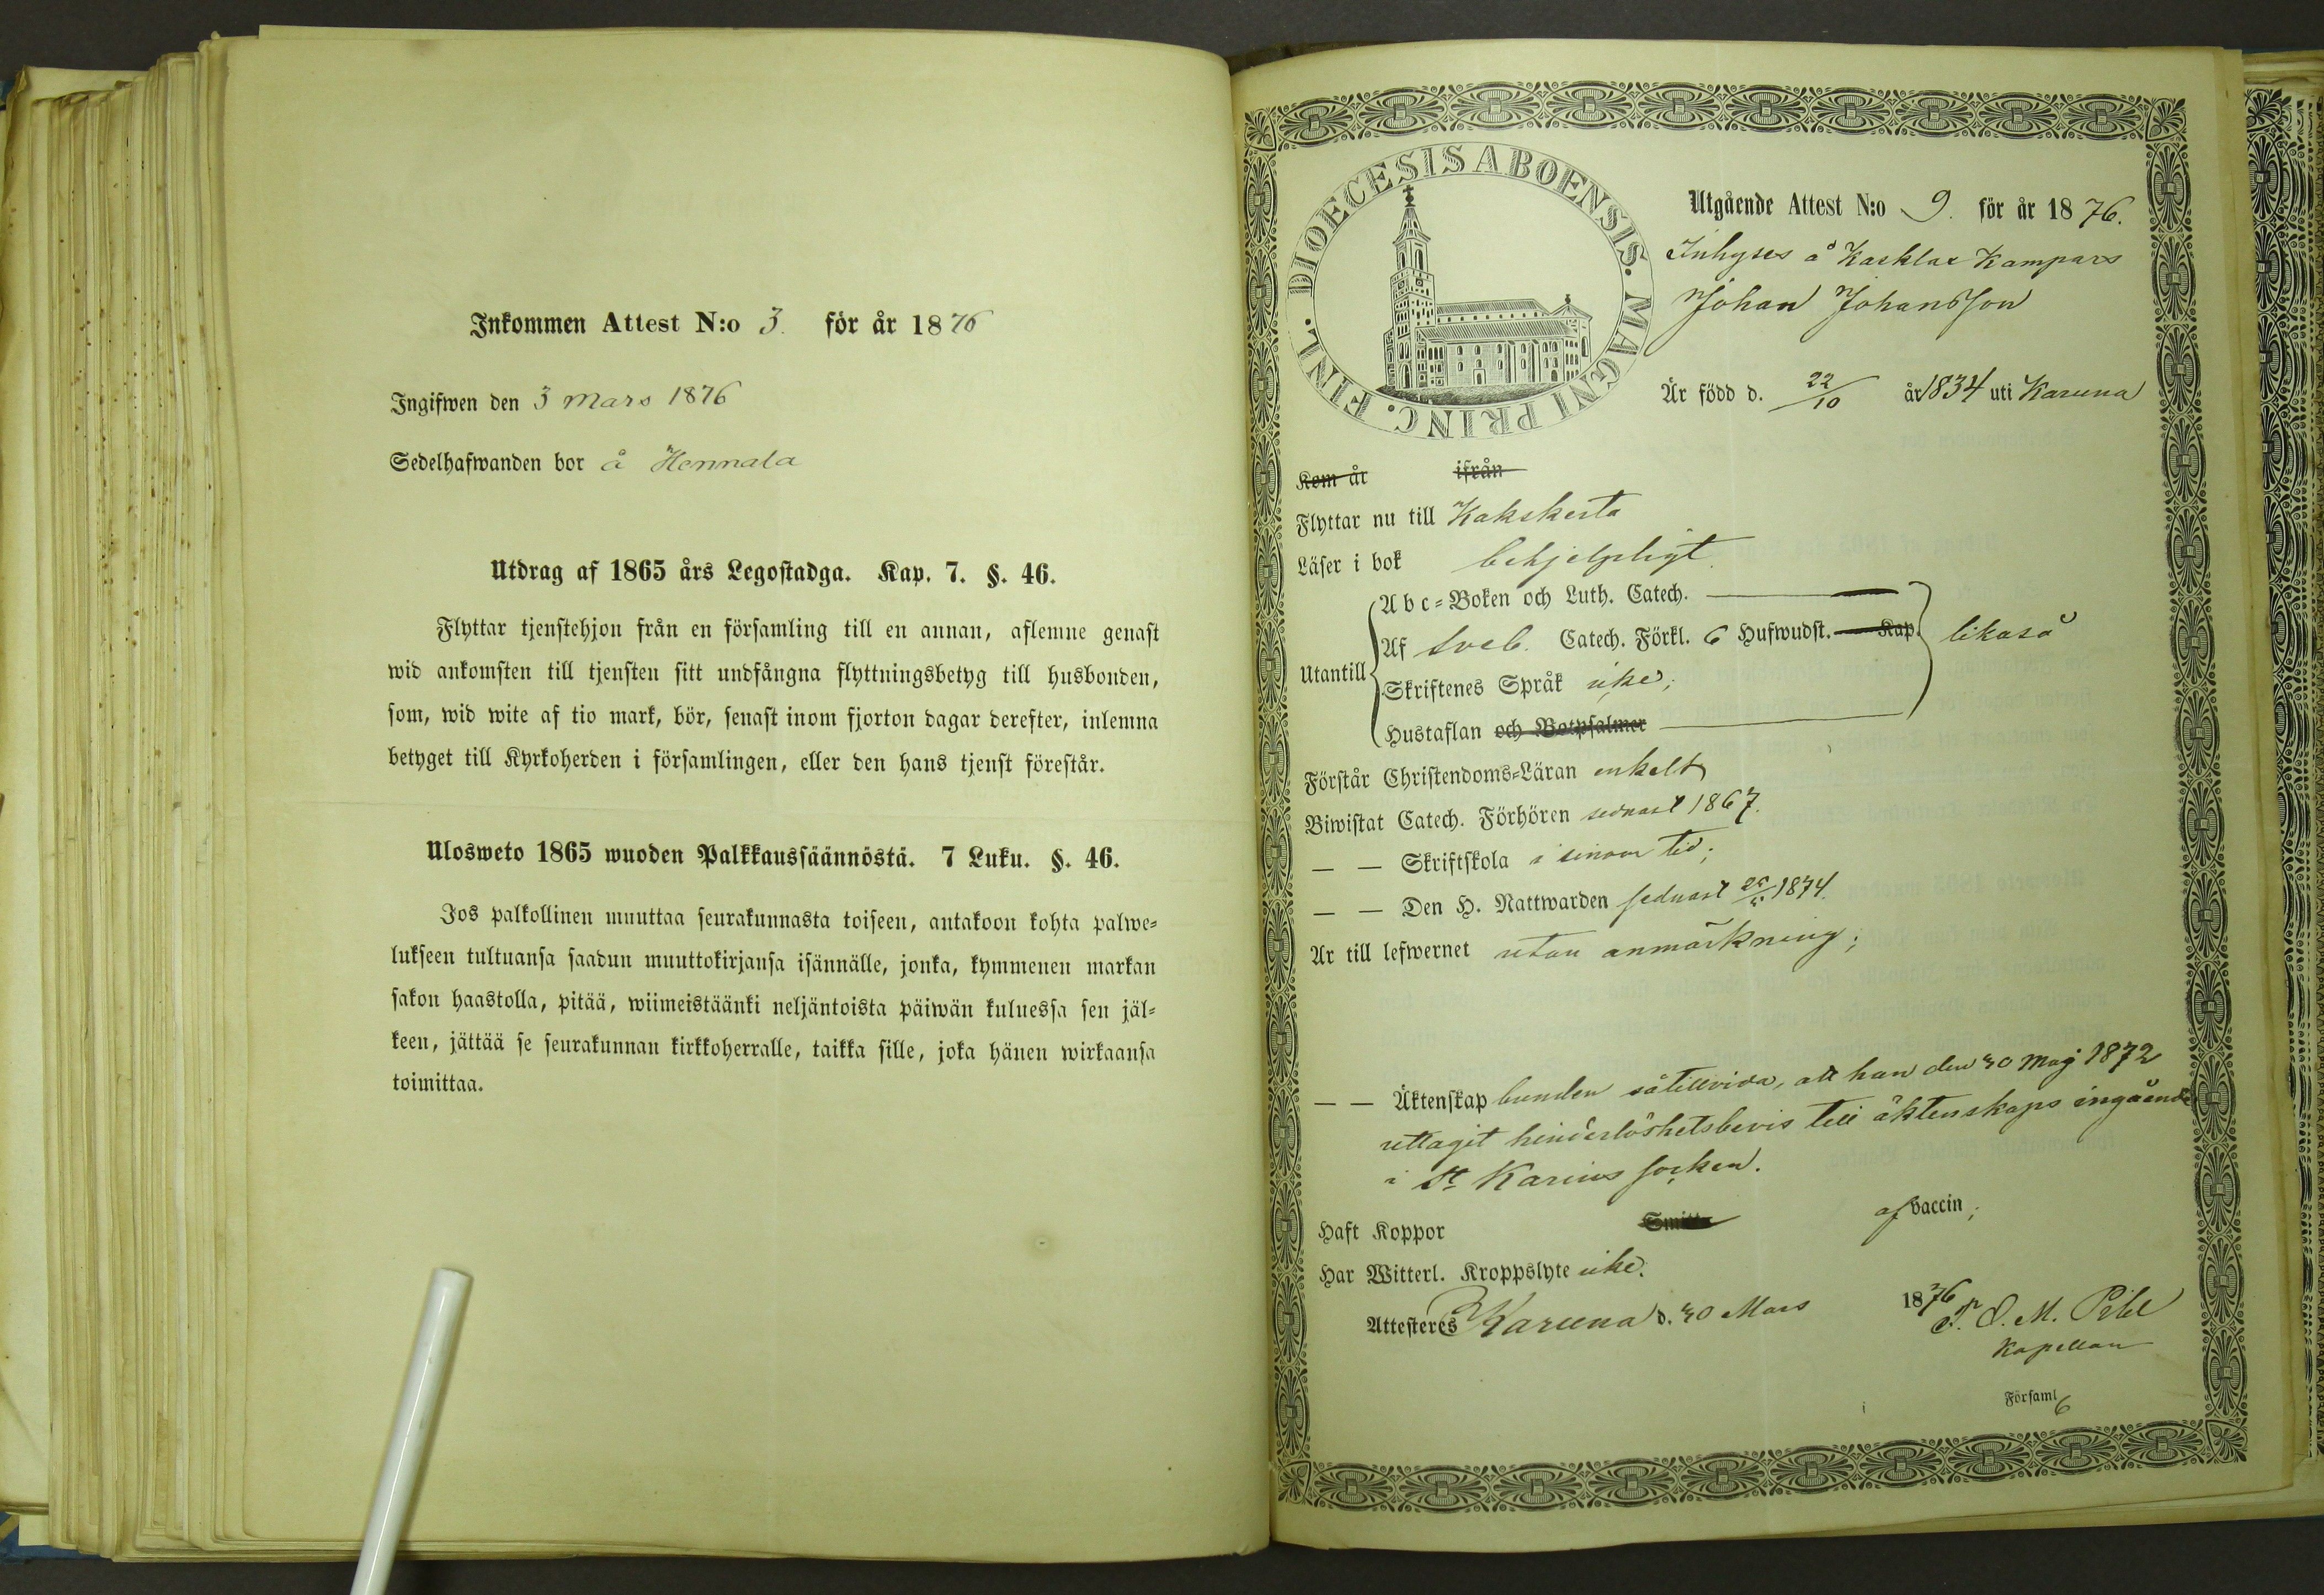 Inkommen Attest N:o 3. för år 1876
Ingifwen den 3 Mars 1876
Sedelhafwanden bor å Hennala
Utdrag af 1865 års Legostadga. Kap. 7. §. 46.
Flyttar tjenstehjon från en församling till en annan, aflemne genast
wid ankomsten till tjensten sitt undfångna flyttningsbetyg till husbonden,
som, wid wite af tio mark, bör, senast inom fjorton dagar derefter, inlemna
betyget till Kyrkoherden i församlingen, eller den hans tjenst förestår.
Ulosweto 1865 wuoden Palkkaussäännöstä. 7 Luku. §. 46.
Jos palkollinen muuttaa seurakunnasta toiseen, antakoon kohta palwe-
lukseen tultuansa saadun muuttokirjansa isännälle, jonka, kymmenen markan
sakon haastolla, pitää, wiimeistäänki neljäntoista päiwän kuluessa sen jäl-
keen, jättää se seurakunnan kirkkoherralle, taikka sille, joka hänen wirkaansa
toimittaa.
DIOECESIS ABOENSIS. MAGNI PRINC. FINL.
Utgående Attest N:o 9. för år 1876.
Inhyses å Kasklax Kampars
Johan Johansson
Är född d. 22/10 år 1834 uti Karuna
Kom år ifrån
Flyttar nu till Kakskerta
Läser i bok behjelpligt.
Utantill
A b c-Boken och Luth. Catech.
Af Sveb. Catech. Förkl. 6 Hufwudst. Kap. likaså
Skriftenes Språk icke;
Hustaflan och Botpsalmer
Förstår Christendoms-Läran enkelt
Biwistat Catech. Förhören sednast 1867.
— — Skriftskola i sinom tid;
— — Den H. Nattwarden sednast 1874.
Är till lefwernet utan anmärkning;
— — Äktenskap bunden såtillvida, att han den 30 Maj 1872
uttagit hinderlöshetsbevis till äktenskaps ingående
i St Karins socken.
Haft Koppor Smitta af vaccin;
Har Witterl. Kroppslyte icke.
Attesteres Karuna d. 30 Mars 1876
Kapellan
Församl
6